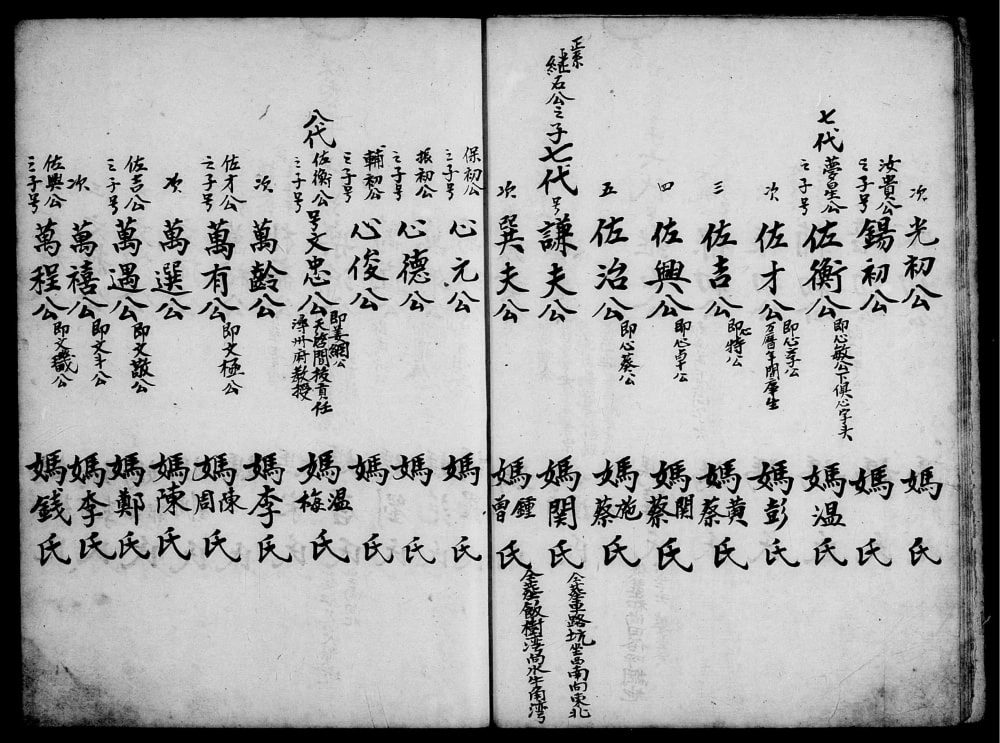 次 光初公 媽 氏
汝貴公之子号 錫初公 媽 氏
七代 夢星公之子号 佐衡公 即心敏公下俱心字头 媽温氏
次 佐才公 即心孚公 万曆年間庠生 媽彭氏
三 佐吉公 即心特公 媽黄蔡氏
四 佐興公 即心卓公 媽関蔡氏
五 佐治公 即心葵公 媽施蔡氏
正系 継石公之子七代号 謙夫公 媽関氏 仝葬車路坑坐西南向東北
次 巽夫公 媽鍾曾氏 仝葬飯樹湾水牛角湾
保初公之子号 心元公 媽 氏
振初公之子号 心德公 媽 氏
輔初公之子号 心俊公 媽 氏
八代 佐衡公之子号 号文忠公 即姜網公 天啓間抜貢任潯州府教授 媽温梅氏
次 萬齡公 媽李氏
佐才公之子号 萬有公 即文極公 媽陳周氏
次 萬選公 媽陳氏
佐吉公之子号 萬遇公 即文敬公 媽鄭氏
次 萬禧公 即文斗公 媽李氏
佐興公之子号 萬程公 即文職公 媽錢氏